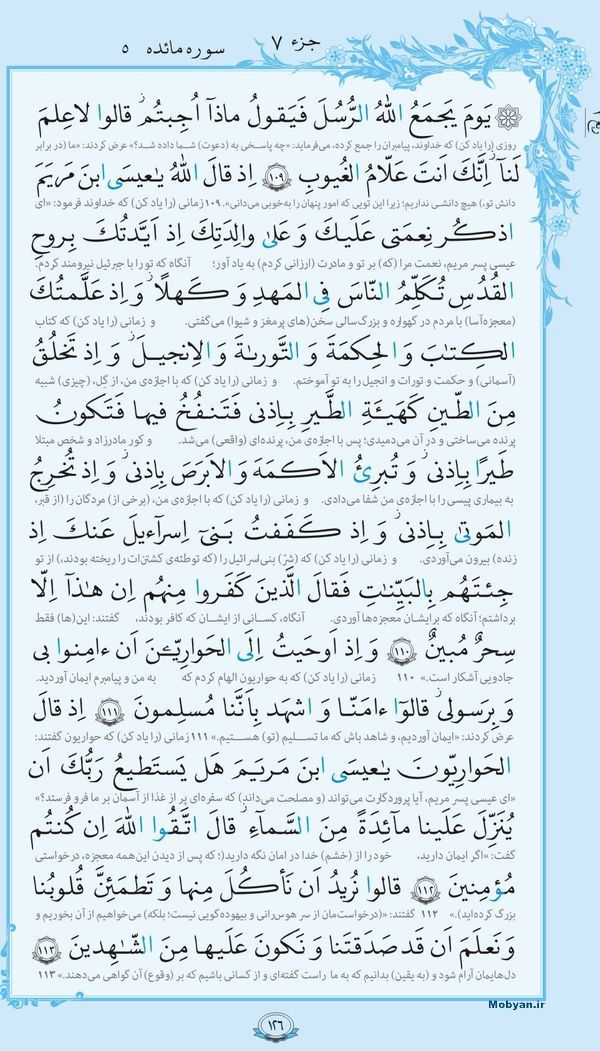 جزء ۷ سوره مائده ۵
يَومَ يَجمَعُ اللهُ الرُّسُلَ فَيَقولُ ماذاۤ اُجِبتُم ۖ قالوا لاعِلمَ
روزی (را یاد کن) که خداوند، پیامبران را جمع کرده، می‌فرماید: «چه پاسخی به (دعوت) شما داده شد؟» عرض کردند: «ما (در برابر
لَنا ۖ اِنَّكَ اَنتَ عَلّامُ الغُيوبِ ١٠٩ اِذ قالَ اللهُ يٰعيسَى ابنَ مَريَمَ
دانش تو،) هیچ دانشی نداریم؛ زیرا این تویی که امور پنهان را به‌خوبی می‌دانی». ۱۰۹ زمانی (را یاد کن) که خداوند فرمود: «ای
اذكُر نِعمَتی عَلَيكَ وَ عَلىٰ والِدَتِكَ اِذ اَيَّدتُكَ بِروحِ
عیسی پسر مریم، نعمت مرا (که) بر تو و مادرت (ارزانی کردم) به یاد آور؛ آنگاه که تو را با جبرئیل نیرومند کردم.
القُدُسِ تُكَلِّمُ النّاسَ فِی المَهدِ وَ كَهلًا ۖ وَ اِذ عَلَّمتُكَ
(معجزه‌آسا) با مردم در گهواره و بزرگ‌سالی سخن(های پرمغز و شیوا) می‌گفتی. و زمانی (را یاد کن) که کتاب
الكِتٰبَ وَ الحِكمَةَ وَ التَّورىٰةَ وَ الاِنجيلَ ۖ وَ اِذ تَخلُقُ
(آسمانی) و حکمت و تورات و انجیل را به تو آموختم. و زمانی (را یاد کن) که با اجازه‌ی من، از گِل، (چیزی) شبیه
مِنَ الطّينِ كَهَيـَٔةِ الطَّيرِ بِاِذنی فَتَنفُخُ فيها فَتَكونُ
پرنده می‌ساختی و در آن می‌دمیدی؛ پس با اجازه‌ی من، پرنده‌ای (واقعی) می‌شد. و کور مادرزاد و شخص مبتلا
طَيرًا بِاِذنی ۖ وَ تُبرِئُ الاَكمَهَ وَ الاَبرَصَ بِاِذنی ۖ وَ اِذ تُخرِجُ
به بیماری پیسی را با اجازه‌ی من شفا می‌دادی. و زمانی (را یاد کن) که با اجازه‌ی من، (برخی از) مردگان را (از قبر،
المَوتىٰ بِاِذنی ۖ وَ اِذ كَفَفتُ بَنیۤ اِسرآءيلَ عَنكَ اِذ
زنده) بیرون می‌آوردی. و زمانی (را یاد کن) که (شرّ) بنی‌اسرائیل را (که توطئه‌ی کشتن‌ات را ریخته بودند،) از تو
جِئتَهُم بِالبَيِّنٰتِ فَقالَ الَّذينَ كَفَروا مِنهُم اِن هٰذاۤ اِلّا
برداشتم؛ آنگاه که برایشان معجزه‌ها آوردی. آنگاه، کسانی از ایشان که کافر بودند، گفتند: این(ها) فقط
سِحرٌ مُبينٌ ١١٠ وَ اِذ اَوحَيتُ اِلَى الحَوارِيّـۧنَ اَن ءامِنوا بی
جادویی آشکار است.» ۱۱۰ زمانی (را یاد کن) که به حواریون الهام کردم که به من و پیامبرم ایمان آوردید.
وَ بِرَسولی ۖ قالوۤا ءامَنّا وَ اشهَد بِاَنَّنا مُسلِمونَ ١١١ اِذ قالَ
عرض کردند: «ایمان آوردیم، و شاهد باش که ما تسلیم (تو) هستیم.» ۱۱۱ زمانی (را یاد کن) که حواریون گفتند:
الحَوارِيّونَ يٰعيسَى ابنَ مَريَمَ هَل يَستَطيعُ رَبُّكَ اَن
«ای عیسی پسر مریم، آیا پروردگارت می‌تواند (و مصلحت می‌داند) که سفره‌ای پر از غذا از آسمان بر ما فرو فرستد؟»
يُنَزِّلَ عَلَينا مآئِدَةً مِنَ السَّمآءِ ۖ قالَ اتَّقُوا اللهَ اِن كُنتُم
گفت: «اگر ایمان دارید، خود را از (خشم) خدا در امان نگه دارید؛ (که پس از دیدن این‌همه معجزه، درخواستی
مُؤمِنينَ ١١٢ قالوا نُريدُ اَن نَأكُلَ مِنها وَ تَطمَئِنَّ قُلوبُنا
بزرگ کرده‌اید).» ۱۱۲ گفتند: «(درخواست‌مان از سر هوس‌رانی و بیهوده‌گویی نیست؛ بلکه) می‌خواهیم از آن بخوریم و
وَ نَعلَمَ اَن قَد صَدَقتَنا وَ نَكونَ عَلَيها مِنَ الشّٰهِدينَ ١١٣
دل‌هایمان آرام شود و (به یقین) بدانیم که به ما راست گفته‌ای و از کسانی باشیم که بر (وقوع) آن گواهی می‌دهند.» ۱۱۳
Mobyan.ir
١٢٦